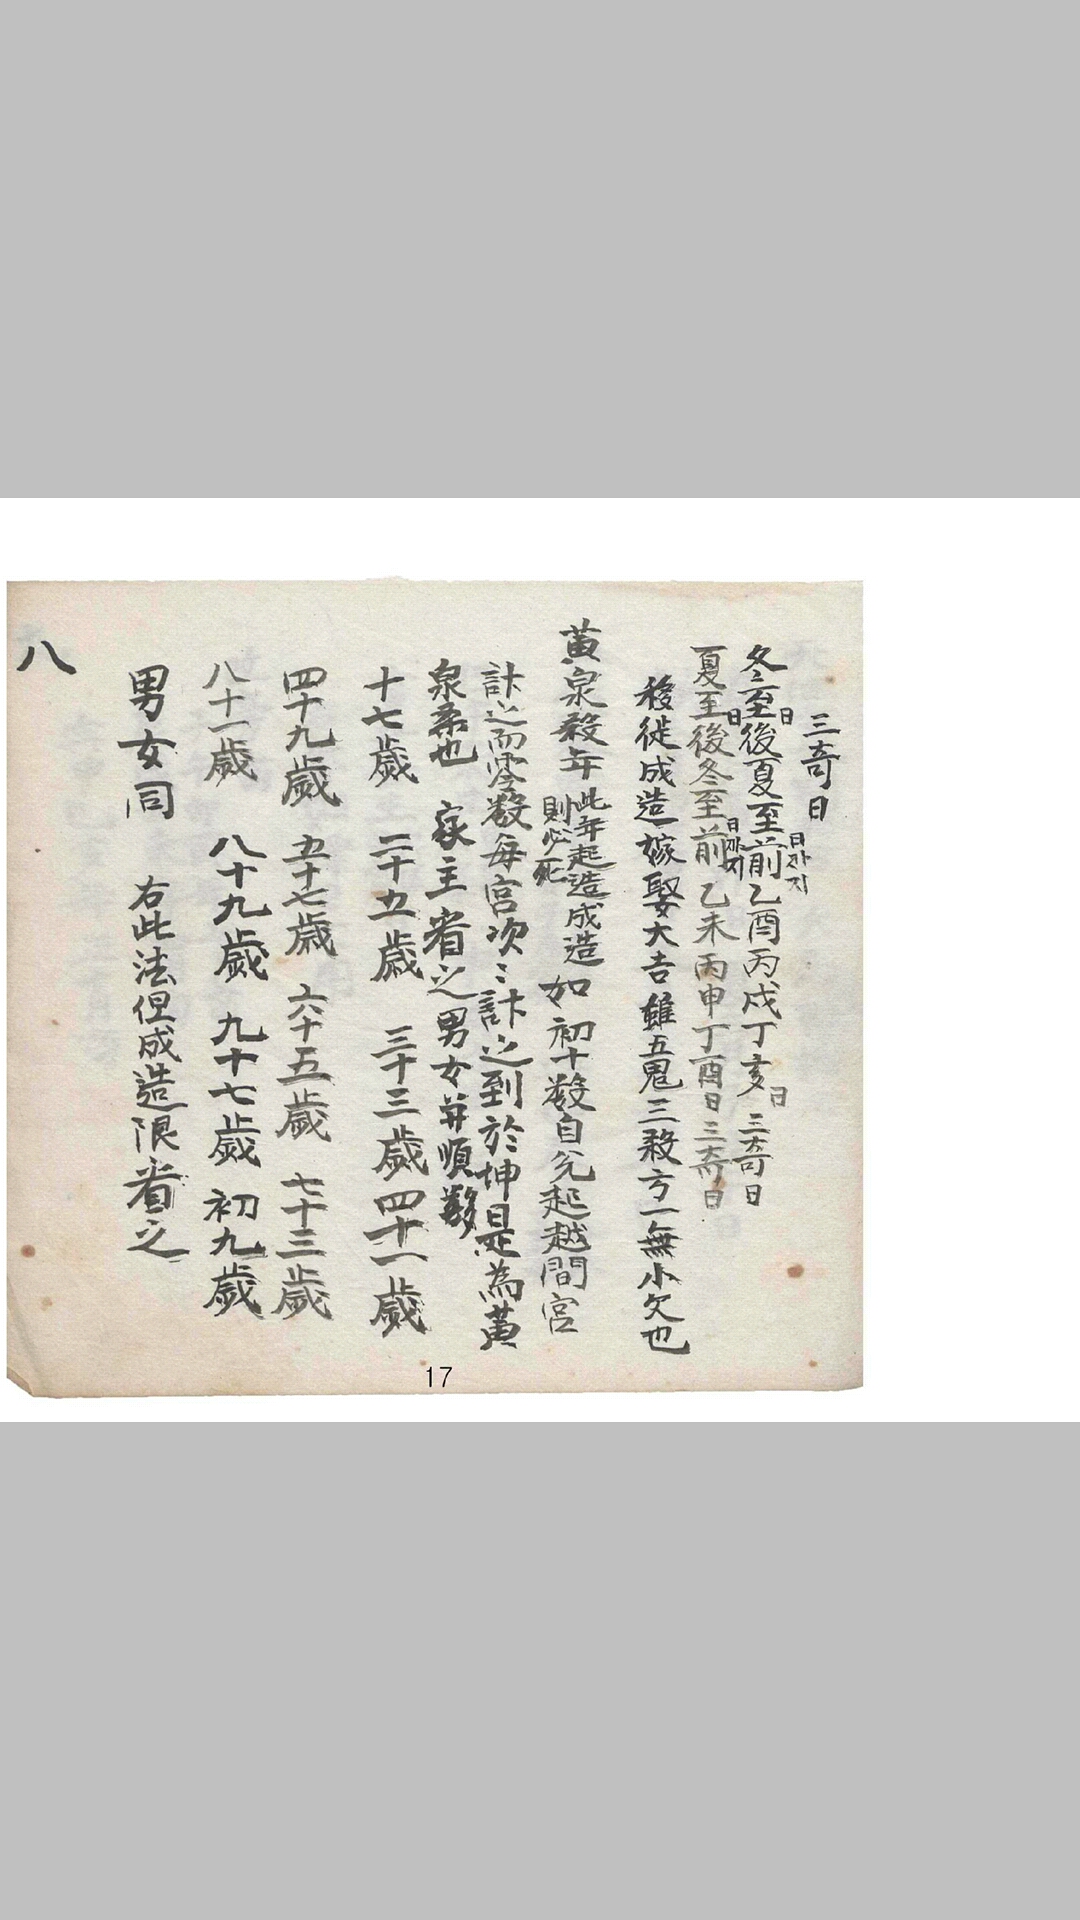 三奇日
冬至日後夏至前日까지乙酉丙戌丁亥日三奇日
夏至日後冬至前日까지乙未丙申丁酉日三奇日
移徙成造嫁娶大吉雖五鬼三殺方一無小欠也
黃泉殺年此年起造成造則必死如初十數自兌起越間宮
計之而零數每宮次〻計之到於坤是為黃
泉柔也 家主者之男女并順數
十七歲 二十五歲 三十三歲 四十一歲
四十九歲 五十七歲 六十五歲 七十三歲
八十一歲 八十九歲 九十七歲 初九歲
男女同 右此法但成造限省之
八
17